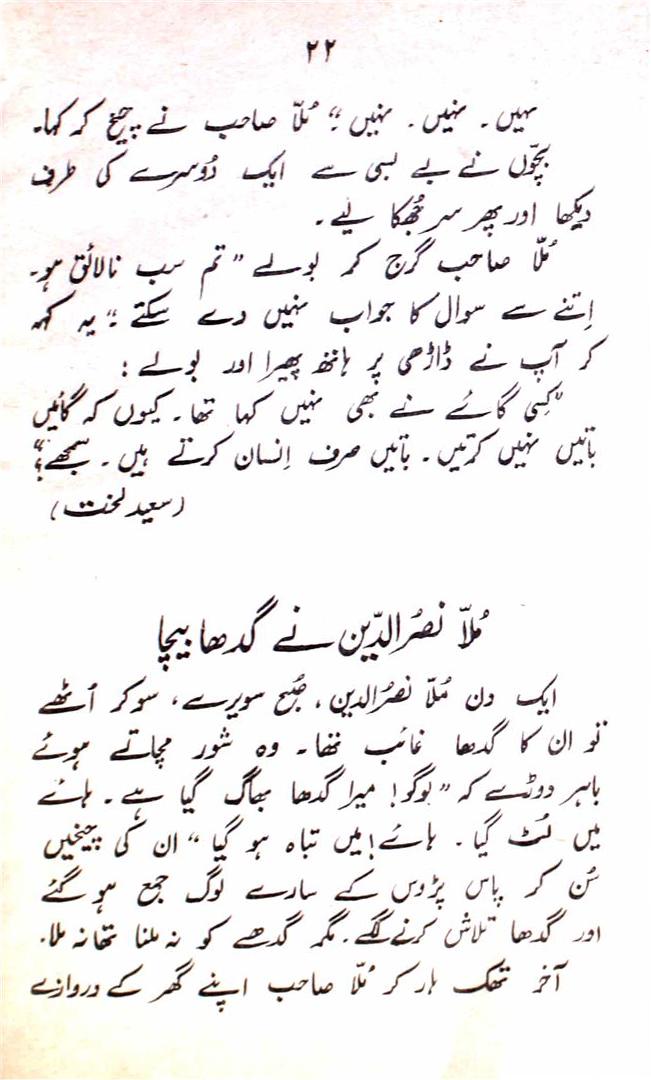 ۲۲
نہیں۔ نہیں۔ نہیں"۔ مُلّا صاحب نے چیخ کر کہا۔
بچّوں نے بے بسی سے ایک دُوسرے کی طرف
دیکھا اور پھر سر جُھکا لیے۔
مُلّا صاحب گرج کر بولے "تم سب نالائق ہو۔
اِتنے سے سوال کا جواب نہیں دے سکتے"۔ یہ کہہ
کر آپ نے ڈاڑھی پر ہاتھ پھیرا اور بولے :
"کِسی گائے نے بھی نہیں کہا تھا۔ کیوں کہ گائیں
باتیں نہیں کرتیں۔ باتیں صرف اِنسان کرتے ہیں۔ سمجھے؟"
(سعید لخت)
مُلّا نصرُ الدّین نے گدھا بیچا
ایک دن مُلّا نصرُ الدین، صُبح سویرے، سو کر اُٹھے
تو ان کا گدھا غائب تھا۔ وہ شور مچاتے ہوئے
باہر دوڑے کہ "لوگو! میرا گدھا بھاگ گیا ہے۔ ہائے
میں لُٹ گیا۔ ہائے! میں تباہ ہو گیا" ان کی چیخیں
سُن کر پاس پڑوس کے سارے لوگ جمع ہو گئے
اور گدھا تلاش کرنے لگے۔ مگر گدھے کو نہ ملنا تھا نہ ملا۔
آخر تھک ہار کر مُلّا صاحب اپنے گھر کے دروازے